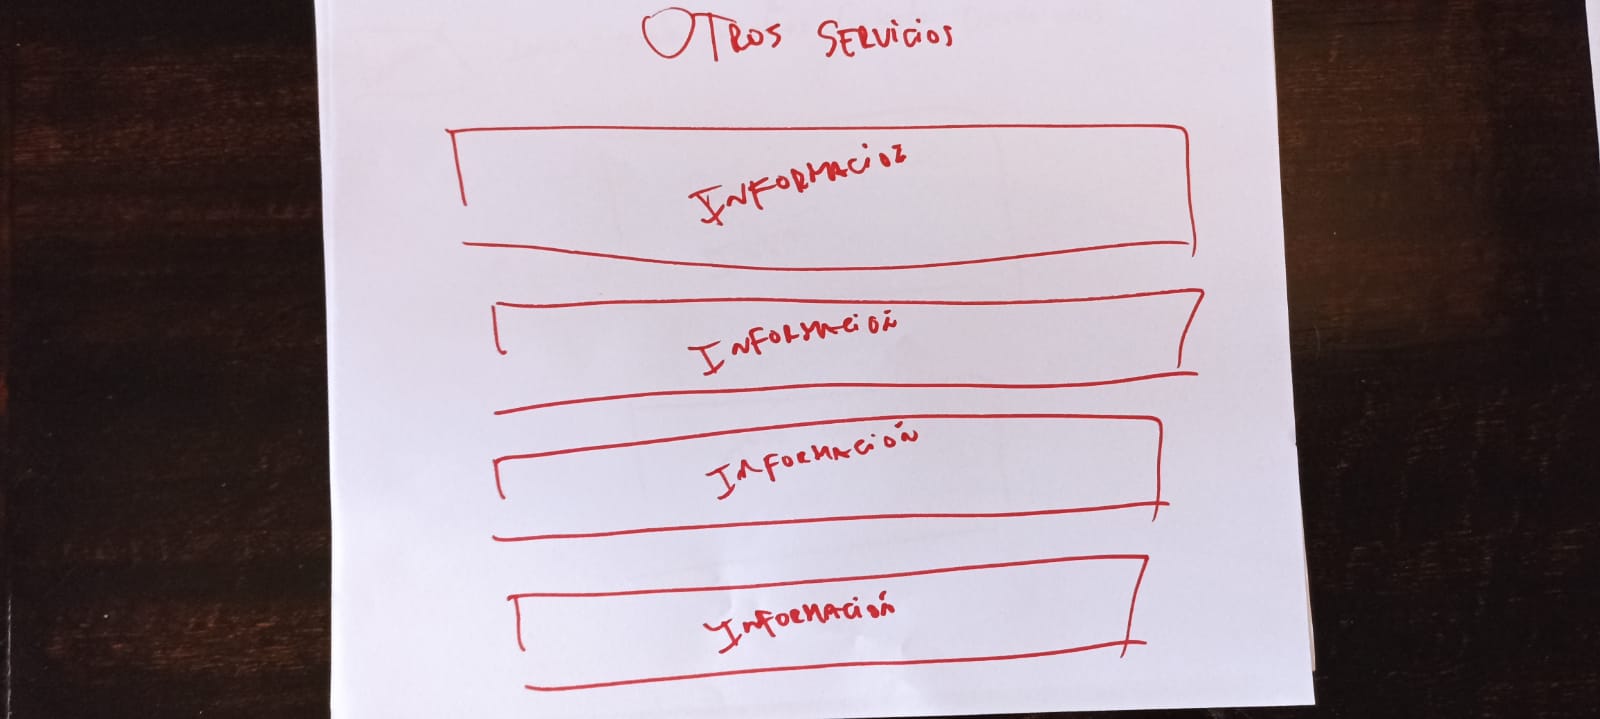 OTROS SERVICIOS
INFORMACIÓN
INFORMACIÓN
INFORMACIÓN
INFORMACIÓN